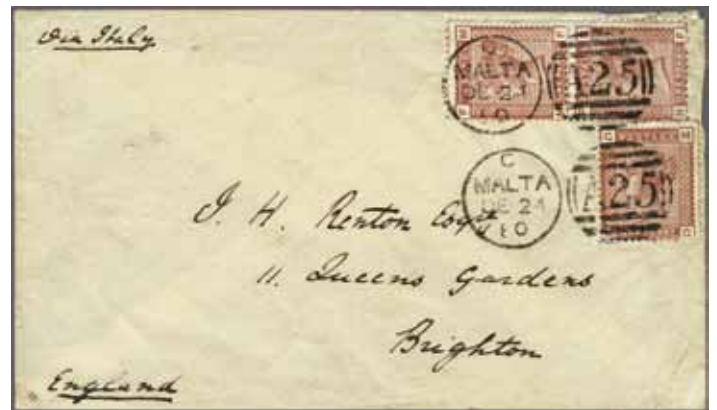 Via Italy
C
MALTA
DE 24
A25
C
MALTA
DE 24
80
A25
J. H. Renton Esqre
11. Queens Gardens
Brighton
England